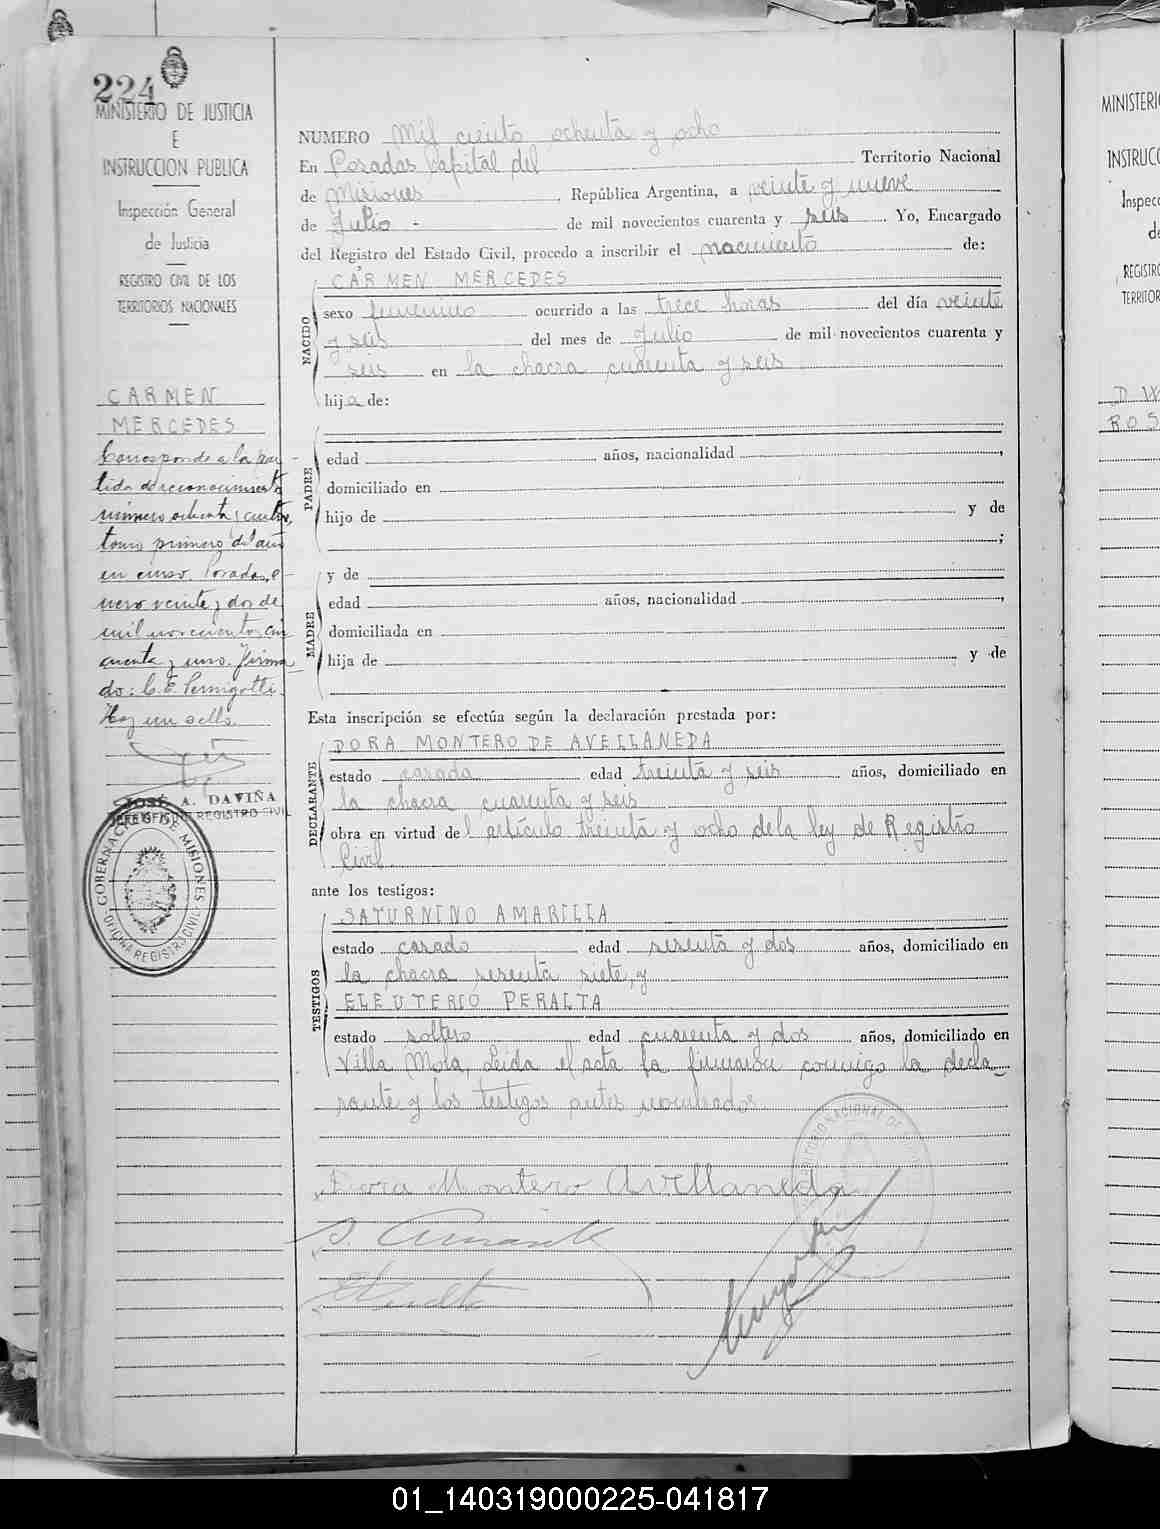 224
MINISTERIO DE JUSTICIA
E
INSTRUCCION PUBLICA
Inspección General
de Justicia
REGISTRO CIVIL DE LOS
TERRITORIOS NACIONALES
CARMEN
MERCEDES
Corresponde a la par-
tida de reconocimiento
número ochenta y cuatro,
tomo primero del año
en curso. Posadas, e-
nero veinte y dos de
mil novecientos cin
cuenta y uno. Firma
do: C. E. Pernigotti.
Hay un sello.
JOSÉ A. DAVIÑA
JEFE OFICINA REGISTRO CIVIL
GOBERNACION DE MISIONES
OFICINA REGISTRO CIVIL
NUMERO Mil ciento ochenta y ocho
En Posadas capital del Territorio Nacional
de Misiones, República Argentina, a veinte y nueve
de Julio - de mil novecientos cuarenta y seis. Yo, Encargado
del Registro del Estado Civil, procedo a inscribir el nacimiento de:
NACIDO
CARMEN MERCEDES
sexo femenino ocurrido a las trece horas del día veinte
y seis del mes de Julio de mil novecientos cuarenta y
seis en la chacra cuarenta y seis
hija de:
PADRE
edad años, nacionalidad ,
domiciliado en
hijo de y de
;
MADRE
y de
edad años, nacionalidad ,
domiciliada en
hija de y de
Esta inscripción se efectúa según la declaración prestada por:
DECLARANTE
DORA MONTERO DE AVELLANEDA
estado casada edad treinta y seis años, domiciliado en
la chacra cuarenta y seis
obra en virtud del artículo treinta y ocho de la ley de Registro
Civil
ante los testigos:
TESTIGOS
SATURNINO AMARILLA
estado casado edad sesenta y dos años, domiciliado en
la chacra sesenta siete, y
ELEUTERIO PERALTA
estado soltero edad cuarenta y dos años, domiciliado en
Villa Mota, Leida el acta la firmaron conmigo la decla-
rante y los testigos antes nombrados.
Dora Montero Avellaneda
S. Amarilla
E Peralta
TERRITORIO NACIONAL DE
MINISTERIO
INSTRUCC
Inspecc
de
REGISTRO
TERRITOR
ROS
01_140319000225-041817